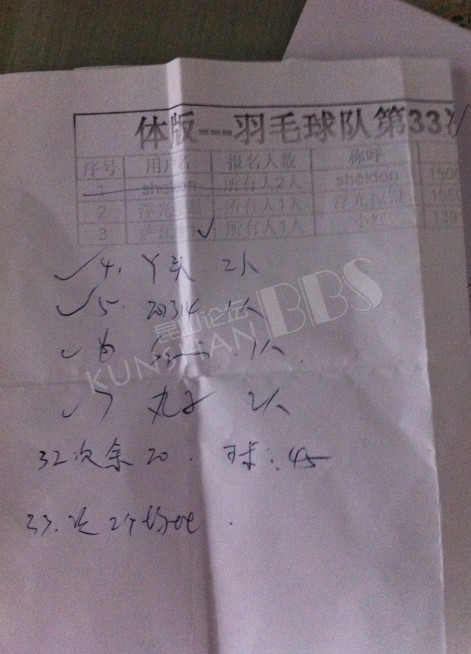 体版---羽毛球队第33次
序号 用户名 报名人数 称呼
1 sheldon 所有人2人 sheldon 150
2 浮光掠影 所有人1人 浮光掠影
3 所有人1人 小红 139
4. 丫头 2人
5. 20314 1人
1人
7 丸子 2人
32次余20. 球:45
33.次 2个场地.
昆山论坛
KUNSHAN BBS